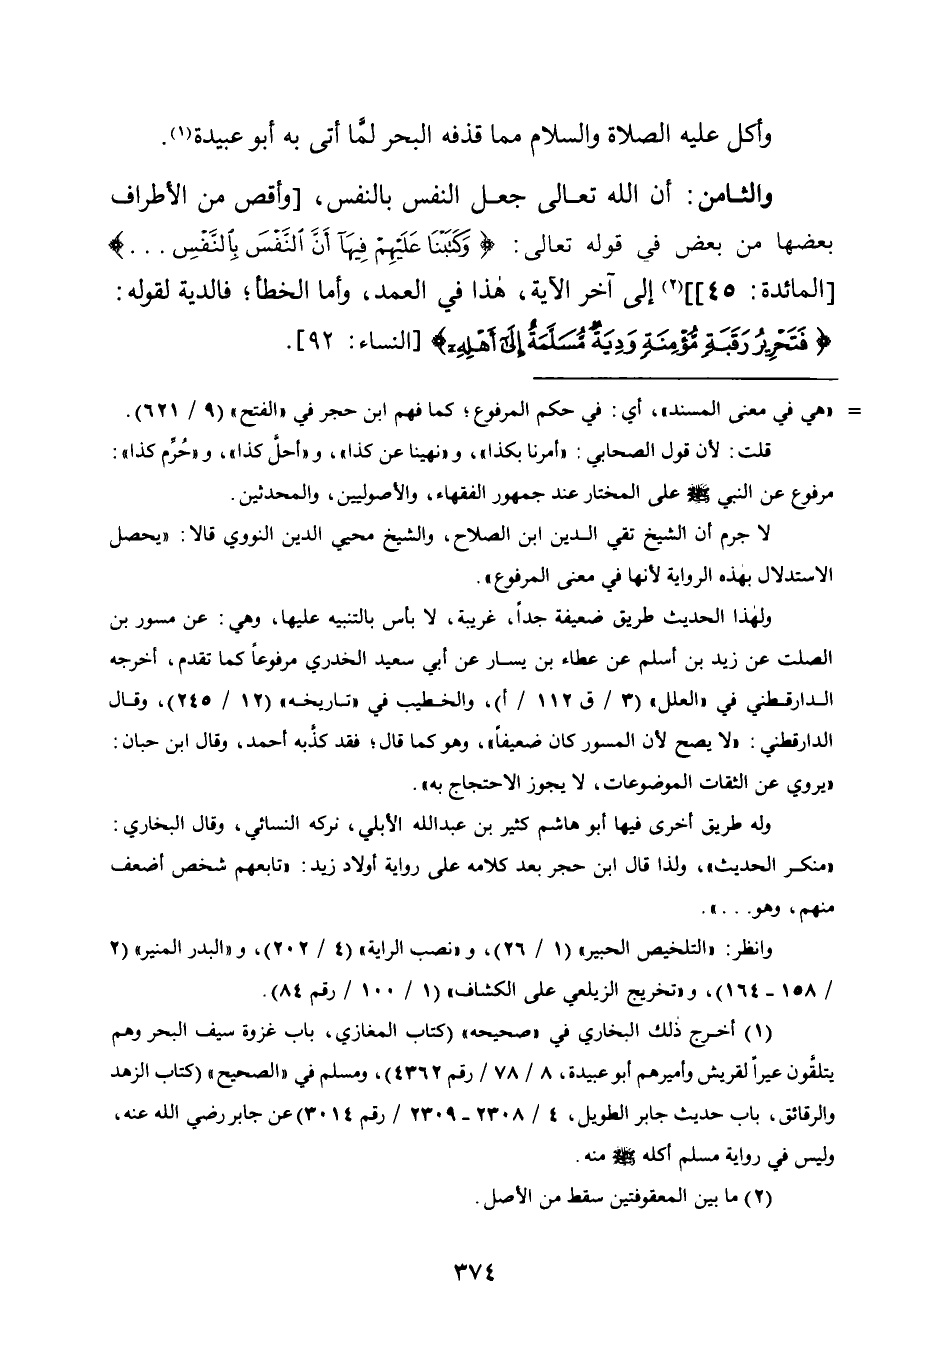 وأكل عليه الصلاة والسلام مما قذفه البحر لمَّا أتى به أبو عبيدة(١).
والثامن: أن الله تعالى جعل النفس بالنفس، [وأقص من الأطراف
بعضها من بعض في قوله تعالى: ﴿ وَكَتَبْنَا عَلَيْهِمْ فِيهَآ أَنَّ ٱلنَّفْسَ بِٱلنَّفْسِ ...﴾
[المائدة: ٤٥]](٢) إلى آخر الآية، هٰذا في العمد، وأما الخطأ؛ فالدية لقوله:
﴿ فَتَحْرِيرُ رَقَبَةٍ مُّؤْمِنَةٍ وَدِيَةٌ مُّسَلَّمَةٌ إِلَىٰٓ أَهْلِهِۦ﴾ [النساء: ٩٢].
= «هي في معنى المسند»، أي: في حكم المرفوع؛ كما فهم ابن حجر في «الفتح» (٩ / ٦٢١).
قلت: لأن قول الصحابي: «أمرنا بكذا»، و «نهينا عن كذا»، و «أحلَّ كذا»، و «حُرِّم كذا»:
مرفوع عن النبي ﷺ على المختار عند جمهور الفقهاء، والأصوليين، والمحدثين.
لا جرم أن الشيخ تقي الدين ابن الصلاح، والشيخ محيي الدين النووي قالا: «يحصل
الاستدلال بهٰذه الرواية لأنها في معنى المرفوع».
ولهٰذا الحديث طريق ضعيفة جداً، غريبة، لا بأس بالتنبيه عليها، وهي: عن مسور بن
الصلت عن زيد بن أسلم عن عطاء بن يسار عن أبي سعيد الخدري مرفوعاً كما تقدم، أخرجه
الدارقطني في «العلل» (٣ / ق ١١٢ / أ)، والخطيب في «تاريخه» (١٢ / ٢٤٥)، وقال
الدارقطني: «لا يصح لأن المسور كان ضعيفاً»، وهو كما قال؛ فقد كذَّبه أحمد، وقال ابن حبان:
«يروي عن الثقات الموضوعات، لا يجوز الاحتجاج به».
وله طريق أخرى فيها أبو هاشم كثير بن عبدالله الأبلي، تركه النسائي، وقال البخاري:
«منكر الحديث»، ولذا قال ابن حجر بعد كلامه على رواية أولاد زيد: «تابعهم شخص أضعف
منهم، وهو...».
وانظر: «التلخيص الحبير» (١ / ٢٦)، و «نصب الراية» (٤ / ٢٠٢)، و «البدر المنير» (٢
/ ١٥٨ ـ ١٦٤)، و «تخريج الزيلعي على الكشاف» (١ / ١٠٠ / رقم ٨٤).
(١) أخرج ذٰلك البخاري في «صحيحه» (كتاب المغازي، باب غزوة سيف البحر وهم
يتلقَّون عيراً لقريش وأميرهم أبو عبيدة، ٨ / ٧٨ / رقم ٤٣٦٢)، ومسلم في «الصحيح» (كتاب الزهد
والرقائق، باب حديث جابر الطويل، ٤ / ٢٣٠٨ ـ ٢٣٠٩ / رقم ٣٠١٤) عن جابر رضي الله عنه،
وليس في رواية مسلم أكله ﷺ منه.
(٢) ما بين المعقوفتين سقط من الأصل.
٣٧٤